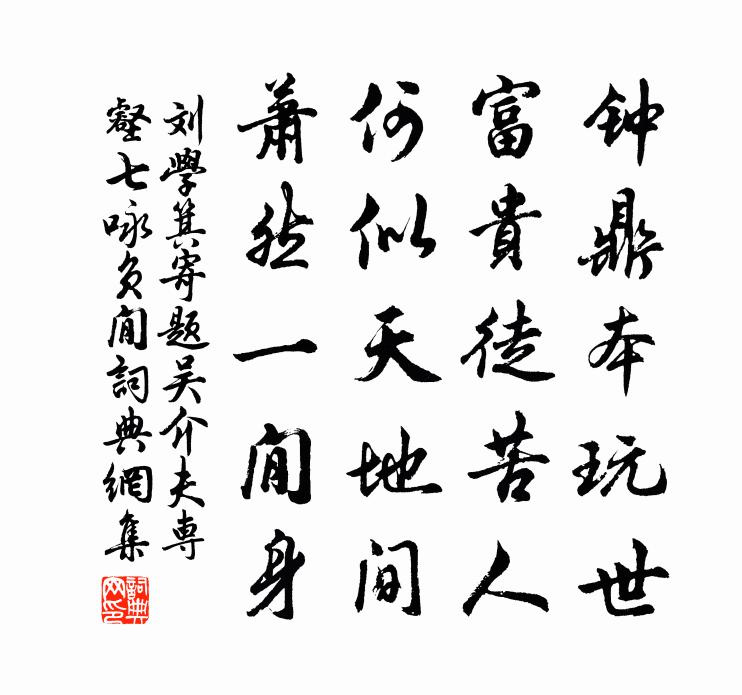 钟鼎本玩世
富貴徒苦人
何似天地间
蕭然一閒身
刘學箕寄题吴介夫専
壑七咏负閒詞典網集
詞典
网印